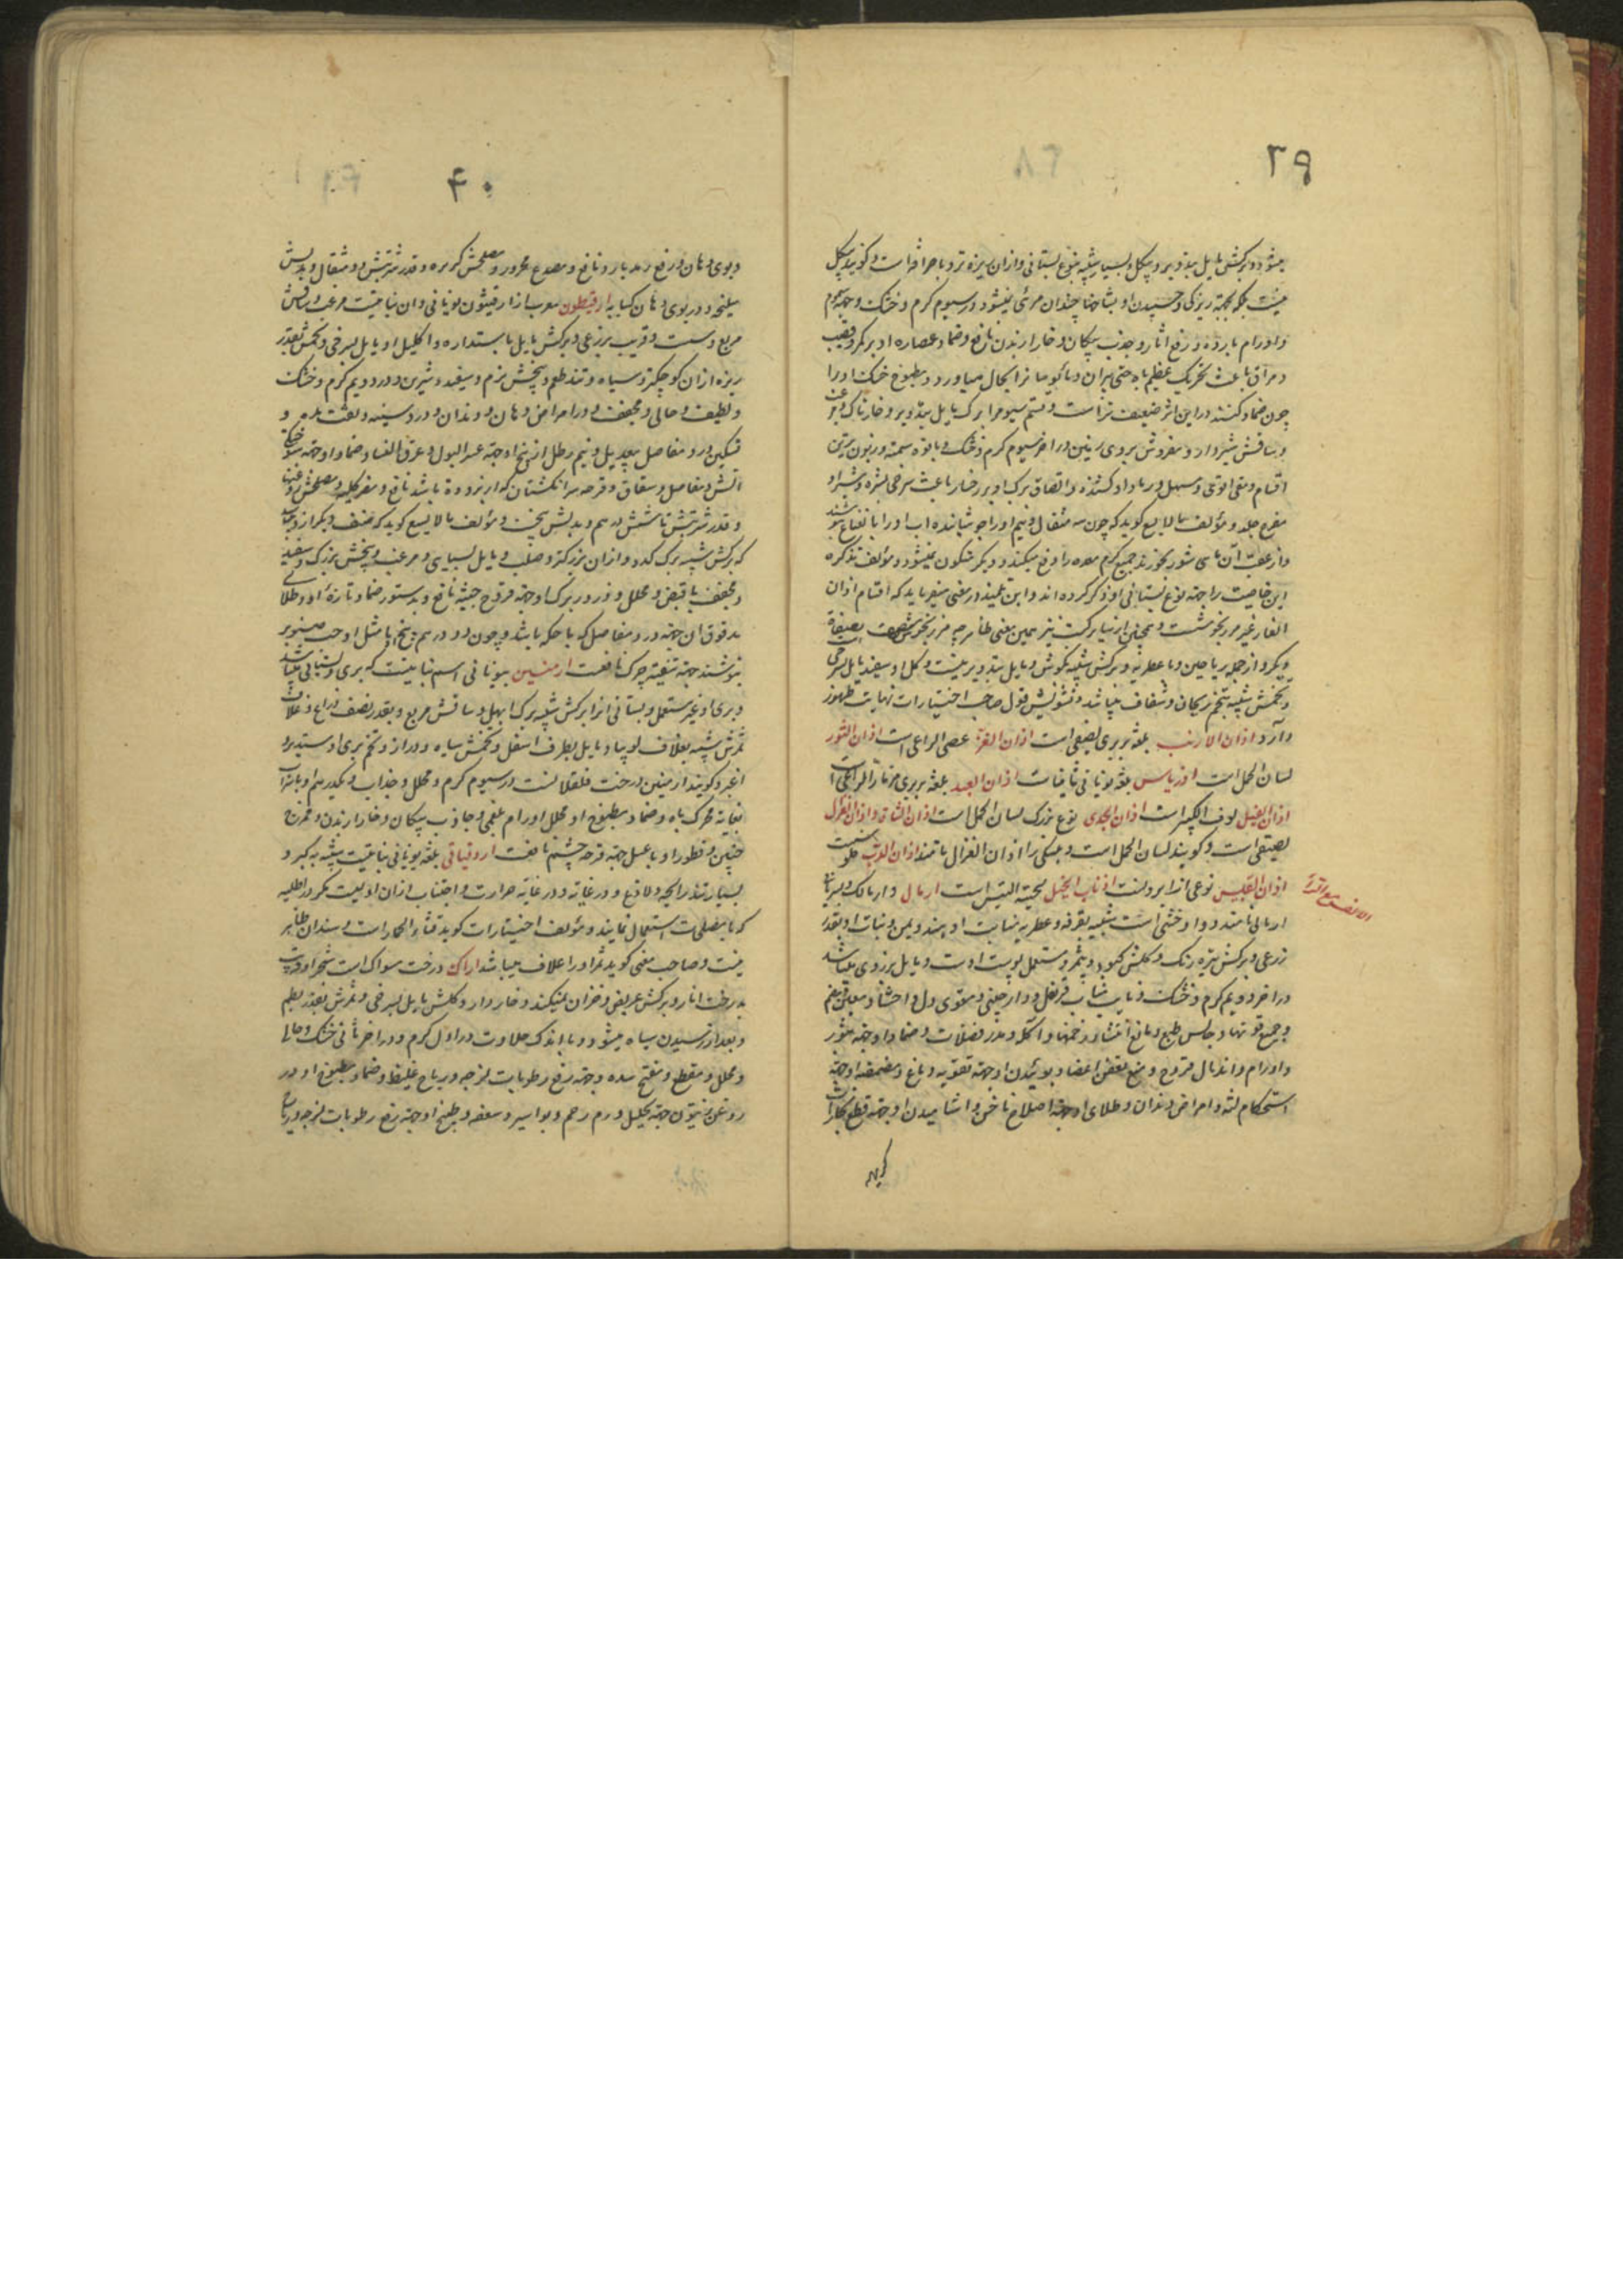 ۳۹
میشود و برکش مایل بتدویر و بیکل و بسیار شبیه بنوع بستانی و از آن ریزه تر و با حرافه است و کویند بیکل
نیست بلکه بجهة ریزکی و چسپیدن او بشاخها چندان مرئی نمیشود در سیوم کرم و خشک و جهة سموم
و اورام بارده و رفع آثار و جذب پیکان و خار از بدن نافع و ضماد عصاره او بر کمر و قضیب
و مراق باعث تحریک عظیم باه حتی پیران و مایوسانرا بحال میاورد و مطبوخ خشک او را
چون ضماد کنند در این اثر ضعیف تر است و قسم سیوم را برک مایل بتدویر و خارناک و مزغب
و ساقش شیردار و مفروش بر روی زمین در آخر سیوم کرم و خشک و با قوه سمیه و زبون ترین
اقسام و مقئ قوی و مسهل و ربا و ادکشنده و الصاق برک او بر رخسار باعث سرخی بشره و شیر او
مقرح جلد و مؤلف مالایسع کوید که چون سه مثقال و نیم او را جوشانیده آب او را با نعناع بنوشند
و از عقب آن ماهی شور بخورند جمیع کرم معده را دفع میکند و دیکر متکون نمیشود و مؤلف تذکره
این خاصیت را جهة نوع بستانی او ذکر کرده اند و ابن تلمیذ در مغنی میفرماید که اقسام اذان
الفار غیر مرزنجوشست و همچنین از بیابرکت نیز همین معنی ظاهر چه مرزنجوش بصیغهٔ
دیکر و از جمله ریاحین و با عطریه و برکش شبیه بکوش و مایل بتدویر نیست و کل او سفید مایل بسرخی
و تخمش شبیه بتخم ریحان و شفاف میباشد و تشویش قول صاحب اختیارات نهایت ظهور
دارد اذان الارنب بلغة بربری لصیقی است اذان العنز عصی الراعی است اذان الثور
لسان الحمل است اذریاس بلغة یونانی ثافیاست اذان العبد بلغة بربری مزمار الراعی است
اذان الفیل لوف الکبیر است اذان الجدی نوع بزرک لسان الحمل است اذان الشاة و اذان الغزال
لصیقی است و کویند لسان الحمل است و بستکی را اذان الغزال نامند اذان الدب
اذان القسیس نوعی از ابرونست اذناب الخیل لحیة التیس است ارمال و ارمالک و بسریانی
ارمالی نامند و دوا و خشبی است شبیه بقرفه و عطریه بنابت او هند و یمن و نبات او بقدر
زرعی و برکش تیره رنک و کلش کبود و بیثمر و مستعمل پوست اوست و مایل بزردی میباشد
در آخر دویم کرم و خشک و نایب مناب قرنفل و دارچینی و مقوی دل و احشا و معده و هضم
و جمیع قوتها و حابس طبع و مانع انتشار زخمها و آکله و مدر فضلات و ضماد او جهة بثور
و اورام و اندمال قروح و منع تعفن اعضا و بوئیدن او جهة تقویه دماغ و مضمضه او جهة
استحکام لثه و امراض دندان و طلای او جهة اصلاح ناخن و آشامیدن او جهة قطع بخارات
کریه
۴۰
و بوی دهان و رفع رمد بارد نافع و مصدع محرور و مصلحش کزبره و قدر شربتش دو مثقال و بدلش
سلیخه و در بوی دهان کبابه ارقیطون معرب از ارقیثون یونانی و آن نباتیست مزغب و ساقش
مربع و سست و قریب بزرعی و برکش مایل باستداره و اکلیل او مایل بسرخی و تخمش بقدر
زیره از آن کوچکتر و سیاه و تند طعم و بیخش نرم و سفید و شیرین و در دویم کرم و خشک
و لطیف و جالی و مجفف و در امراض دهان و دندان و درد سینه و نفث مده و
تسکین درد مفاصل بیعدیل و نیم رطل از بیخ او جهة عسر البول و عرق النسا و ضماد او جهة سوختکی
آتش و مفاصل و شقاق و قرحه سر انکشتان که از برودة باشد نافع و مضر کلیه و مصلحش روغنها
و قدر شربتش تا شش درهم و بدلش بیخست و مؤلف مالایسع کوید که صنف دیکر از و میباشد
که برکش شبیه ببرک کدو و از آن بزرکتر و صلب و مایل بسیاهی و مزغب و بیخش بزرک و سفید
و مجفف با قبض و محلل و ذرور برک او جهة قروح خبیثه نافع و بدستور ضماد تازهٔ او و طلای
مدقوق آن جهة درد مفاصل که با حکه باشد و چون دو درهم بیخ او با مثل او حب صنوبر
بنوشند جهة تنقیه چرک نافعست ارمنیین بیونانی اسم نباتیست که بری و بستانی میباشد
و بری او غیر مستعمل و بستانی انرا برکش شبیه ببرک ابهل و ساقش مربع و بقدر نصف ذراع و غلاف
ثمرش شبیه بغلاف لوبیا و مایل بطرف اسفل و تخمش سیاه و دراز و تخم بری او مستدیر و
اغبر و کویند ارمنین درخت قلقلانست در سیوم کرم و محلل و جذاب و یکدرهم او با شراب
بغایه محرک باه و ضماد مطبوخ او محلل اورام بلغمی و جاذب پیکان و خار از بدن و مخرج
جنین و قطور او با عسل جهة قرحه چشم نافعست ارودنیاتی بلغة یونانی نباتیست شبیه به کبر و
بسیار تند رایحه و لاذع و در غایة و در غایة حرارت و اجتناب از آن اولیست مکر در اطلیه
که با مصلحات استعمال نمایند و مؤلف اختیارات کوید قثاء الحمار است و سند آن ظاهر
نیست و صاحب مغنی کوید ثمر او را غلاف میباشد اراک درخت مسواک است شجر او قریب
بدرخت انار و برکش عریض و خزان نمیکند و خاردار و کلش مایل بسرخی و ثمرش بقدر بطم
و بعد از رسیدن سیاه میشود و با اندک حلاوت در اول کرم و در آخر ثانی خشک و جالی
و محلل و مقطع و مفتح سده و جهة رفع رطوبات لزجه و ریاح غلیظ و ضماد مطبوخ او در
روغن زیتون جهة تحلیل ورم رحم و بواسیر و سعفه و طبیخ او جهة رفع رطوبات لزجه و ریاح